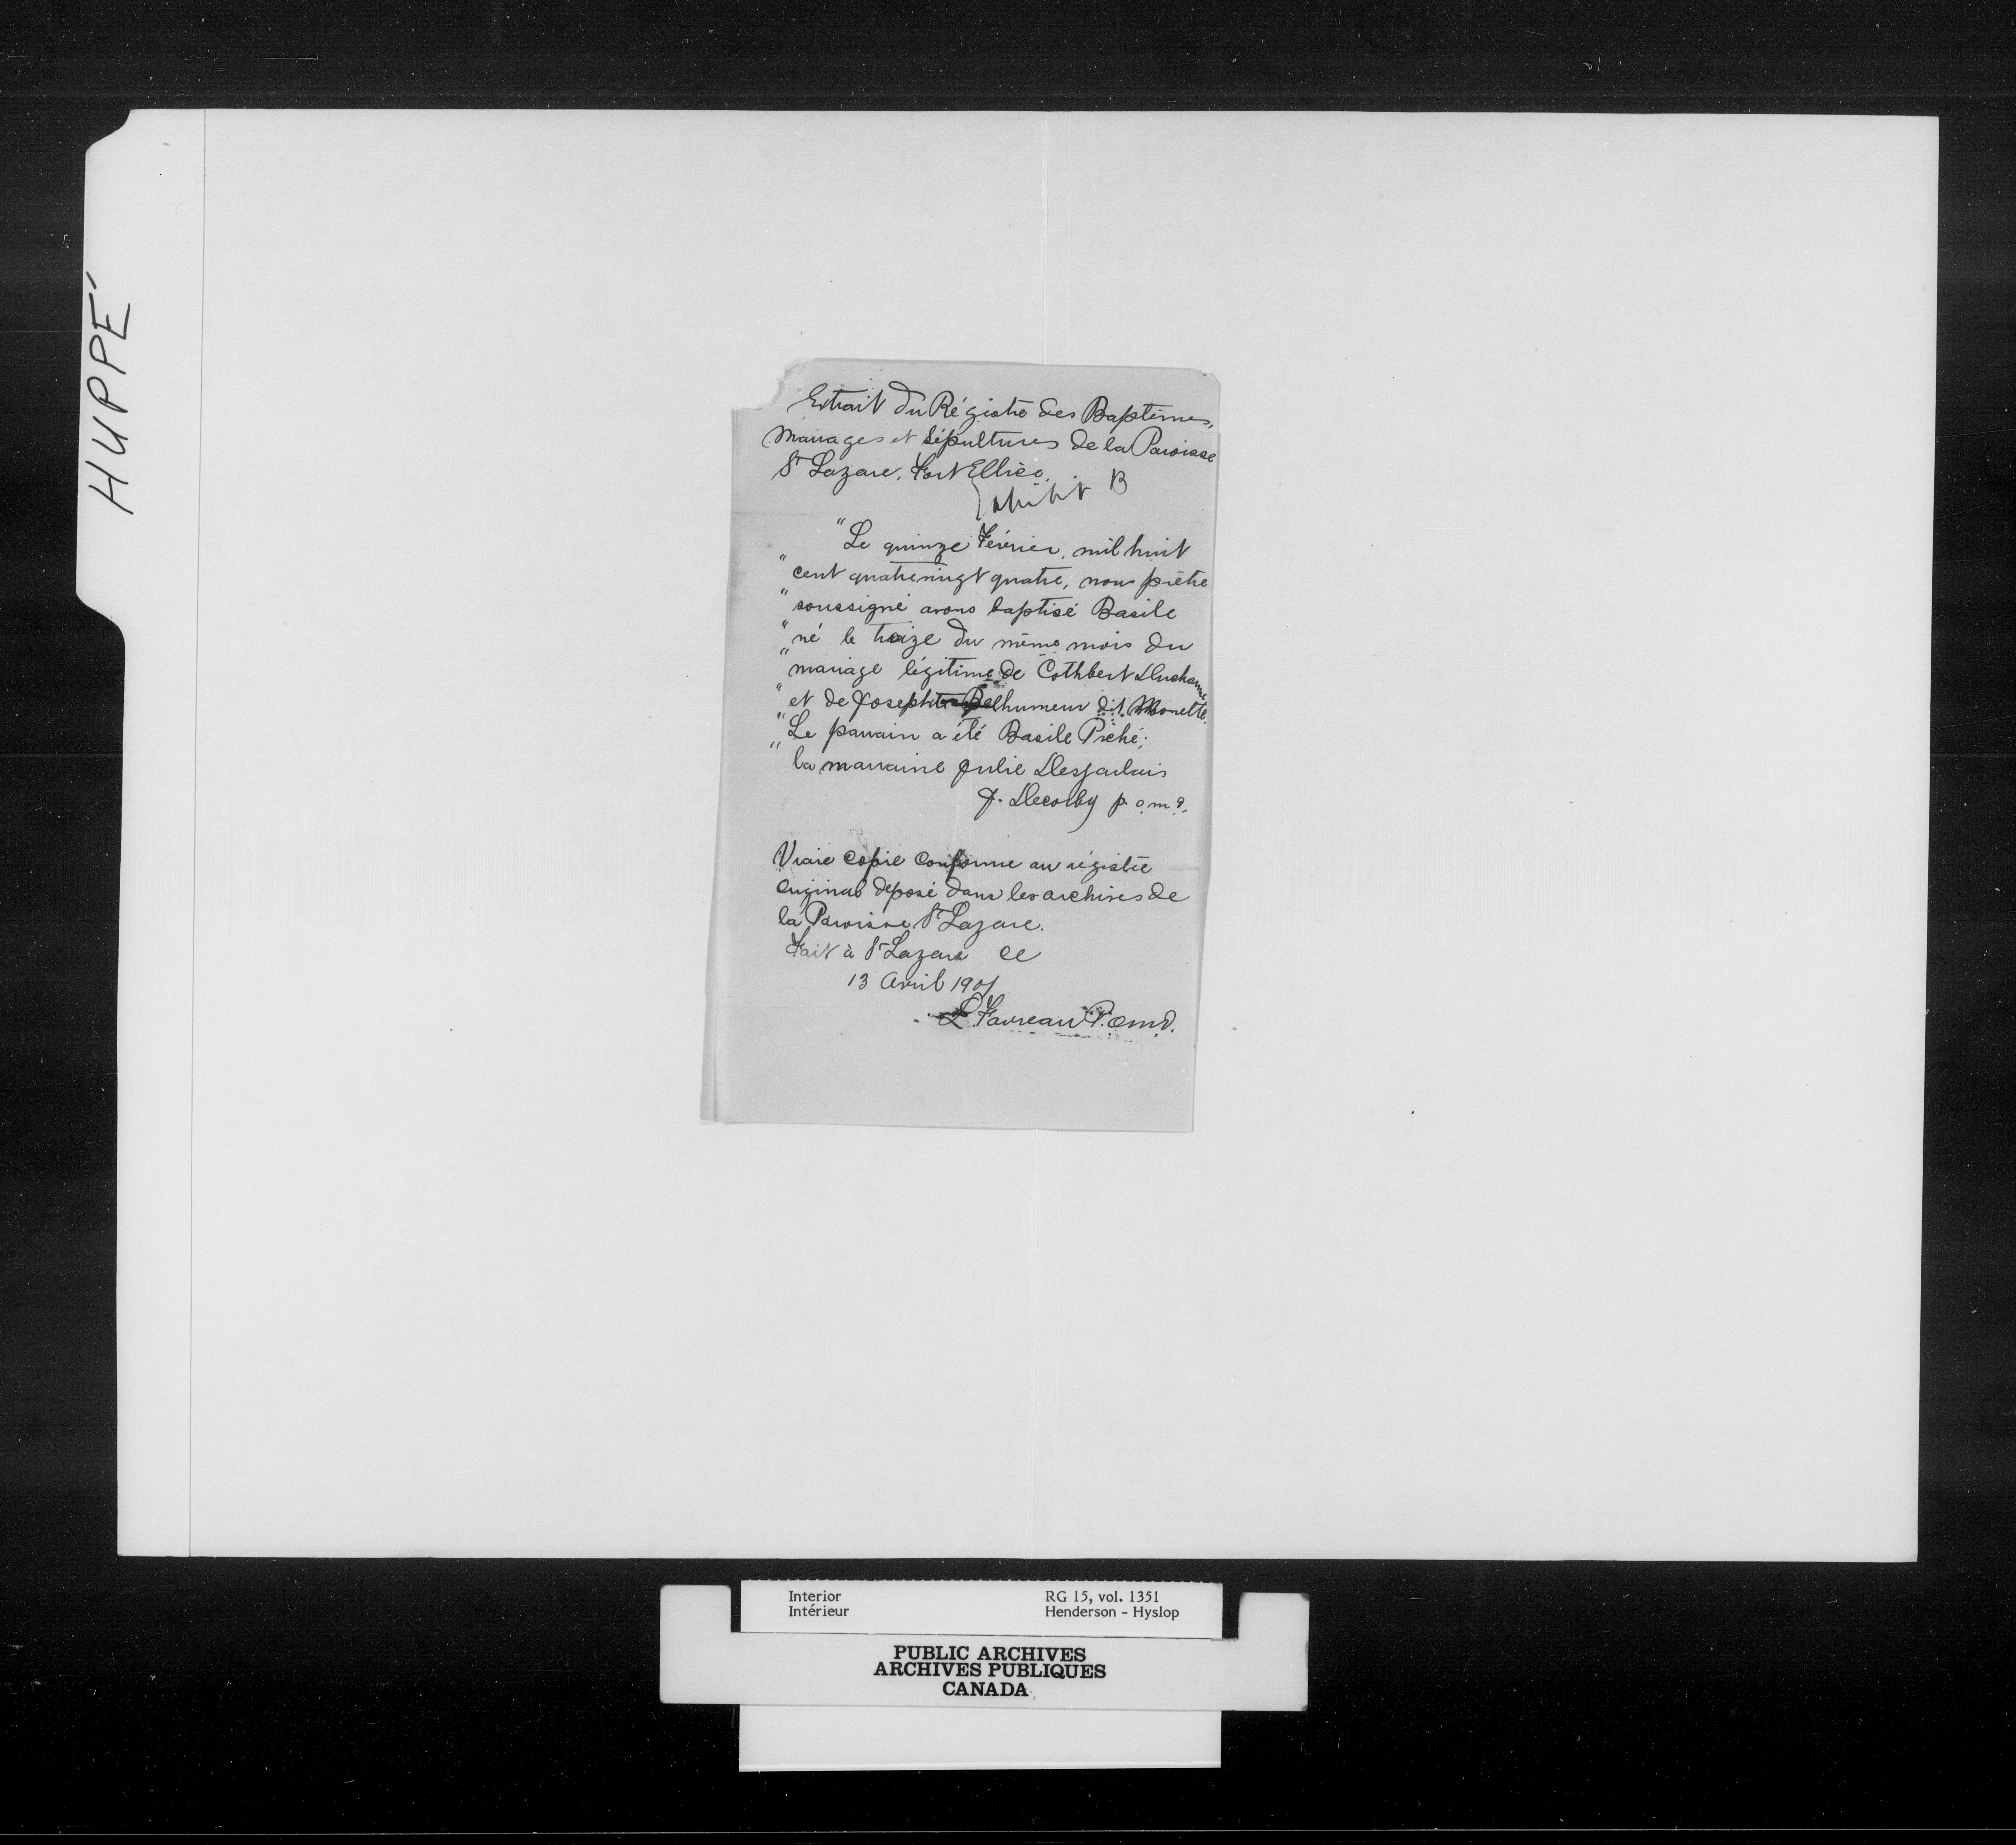 HUPPÉ
Extrait du Régistre des Baptêmes,
Mariages et Sépultures de la Paroisse
St Lazare. Fort Ellice.
Exhibit B
"Le quinze Février, mil huit
"cent quatrevingt quatre, nous prêtre
"soussigné avons baptisé Basile
"né le treize du même mois du
"mariage légitime de Cothbert Ducharme
"et de Josephte Belhumeur dit Monette.
"Le parrain a été Basile Piché;
"la marraine Julie Desjarlais
J. Decorby p. o.m.i.
Vraie copie conforme au régistre
original deposé dans les archives de
la Paroisse St Lazare.
Fait à St Lazare ce
13 Avril 1901
L. Favreau P. o.m.i.
Interior RG 15, vol. 1351
Intérieur Henderson - Hyslop
PUBLIC ARCHIVES
ARCHIVES PUBLIQUES
CANADA